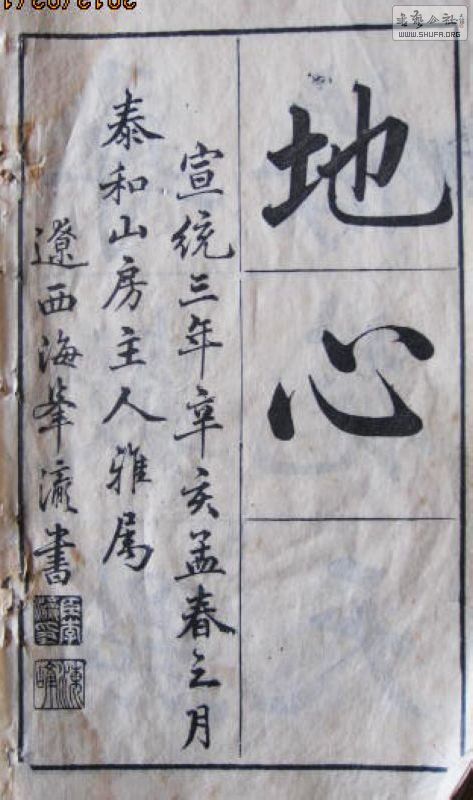 地心
宣統三年辛亥孟春之月
泰和山房主人雅属
遼西海峯瀛書
WWW.SHUFA.ORG